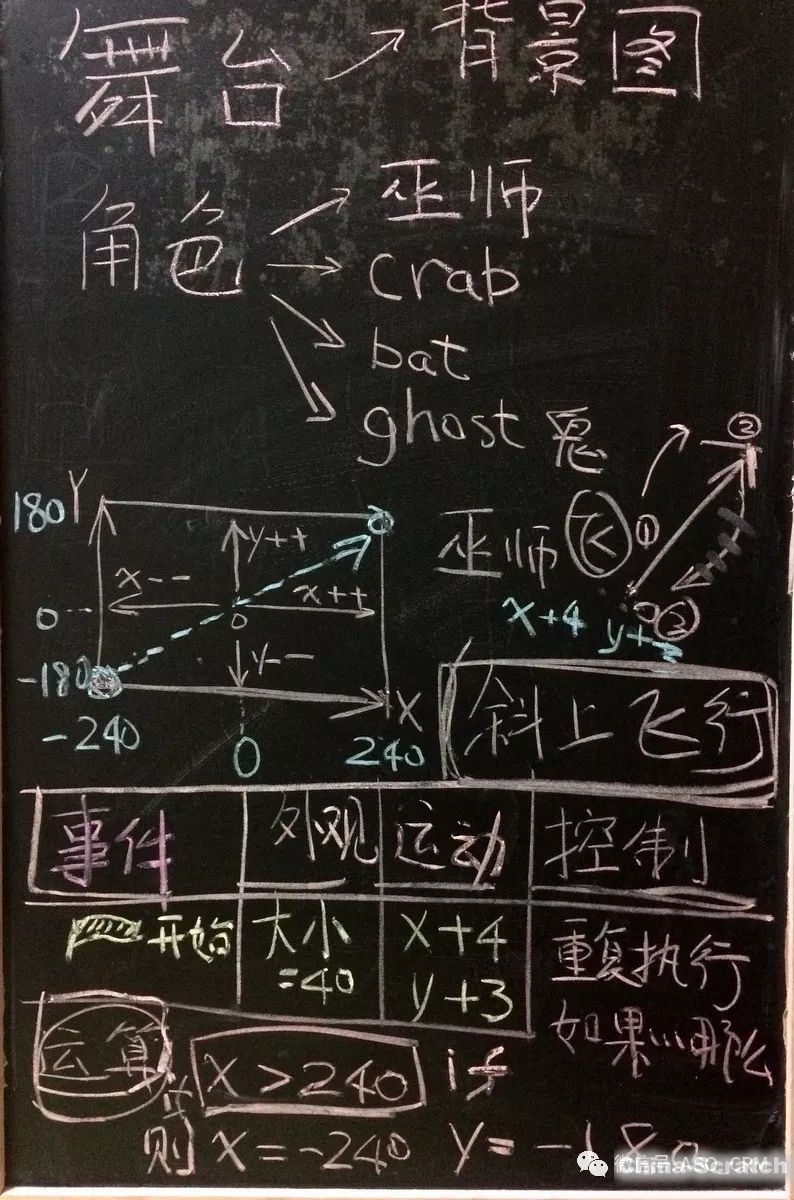 舞台 → 背景图
角色 → 巫师
→ crab
→ bat
→ ghost 鬼
巫师 飞 ① ② ③
x+4 y+3
180 Y
y++
x--
x++
0
0
y--
-180
-240 0 240 X
斜上飞行
事件 外观 运动 控制
开始 大小=40 x+4 y+3 重复执行
如果…那么
运算 x>240 if
则 x=-240 y=-180
微信号: ASO_CRM
China-Scratch